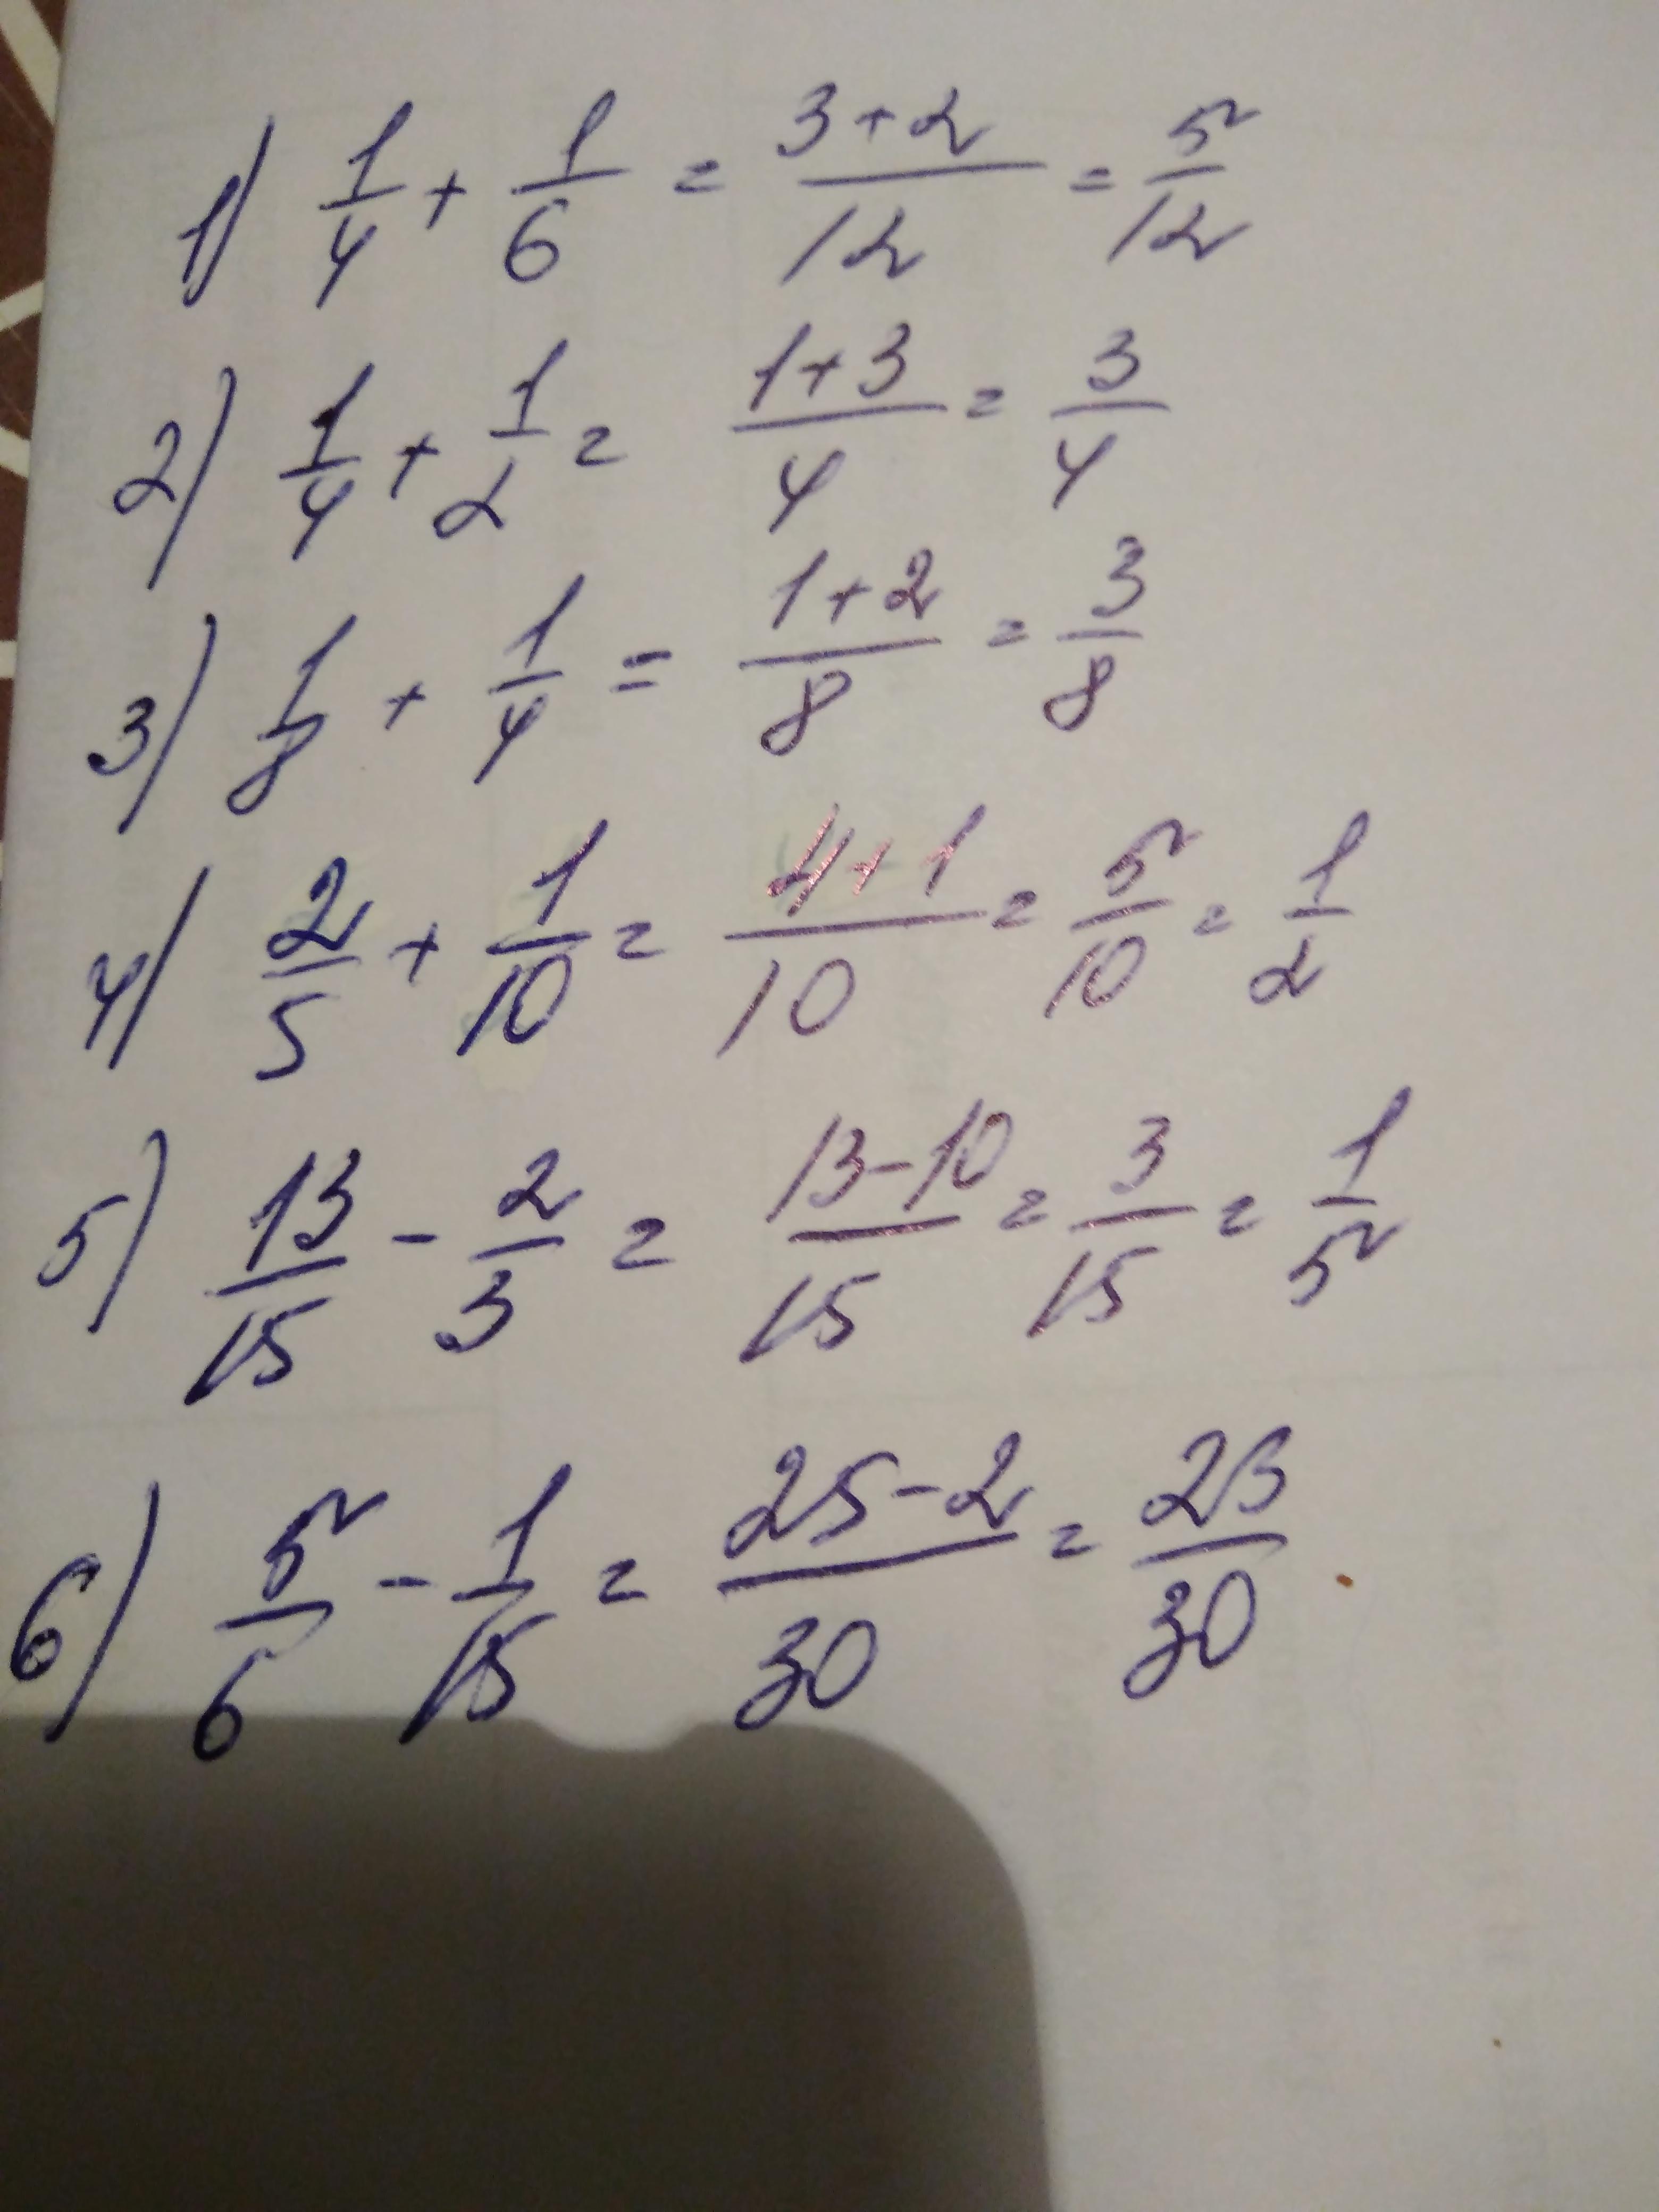 1) 1/4 + 1/6 = (3+2)/12 = 5/12
2) 1/4 + 1/2 = (1+3)/4 = 3/4
3) 1/8 + 1/4 = (1+2)/8 = 3/8
4) 2/5 + 1/10 = (4+1)/10 = 5/10 = 1/2
5) 13/15 - 2/3 = (13-10)/15 = 3/15 = 1/5
6) 5/6 - 1/15 = (25-2)/30 = 23/30